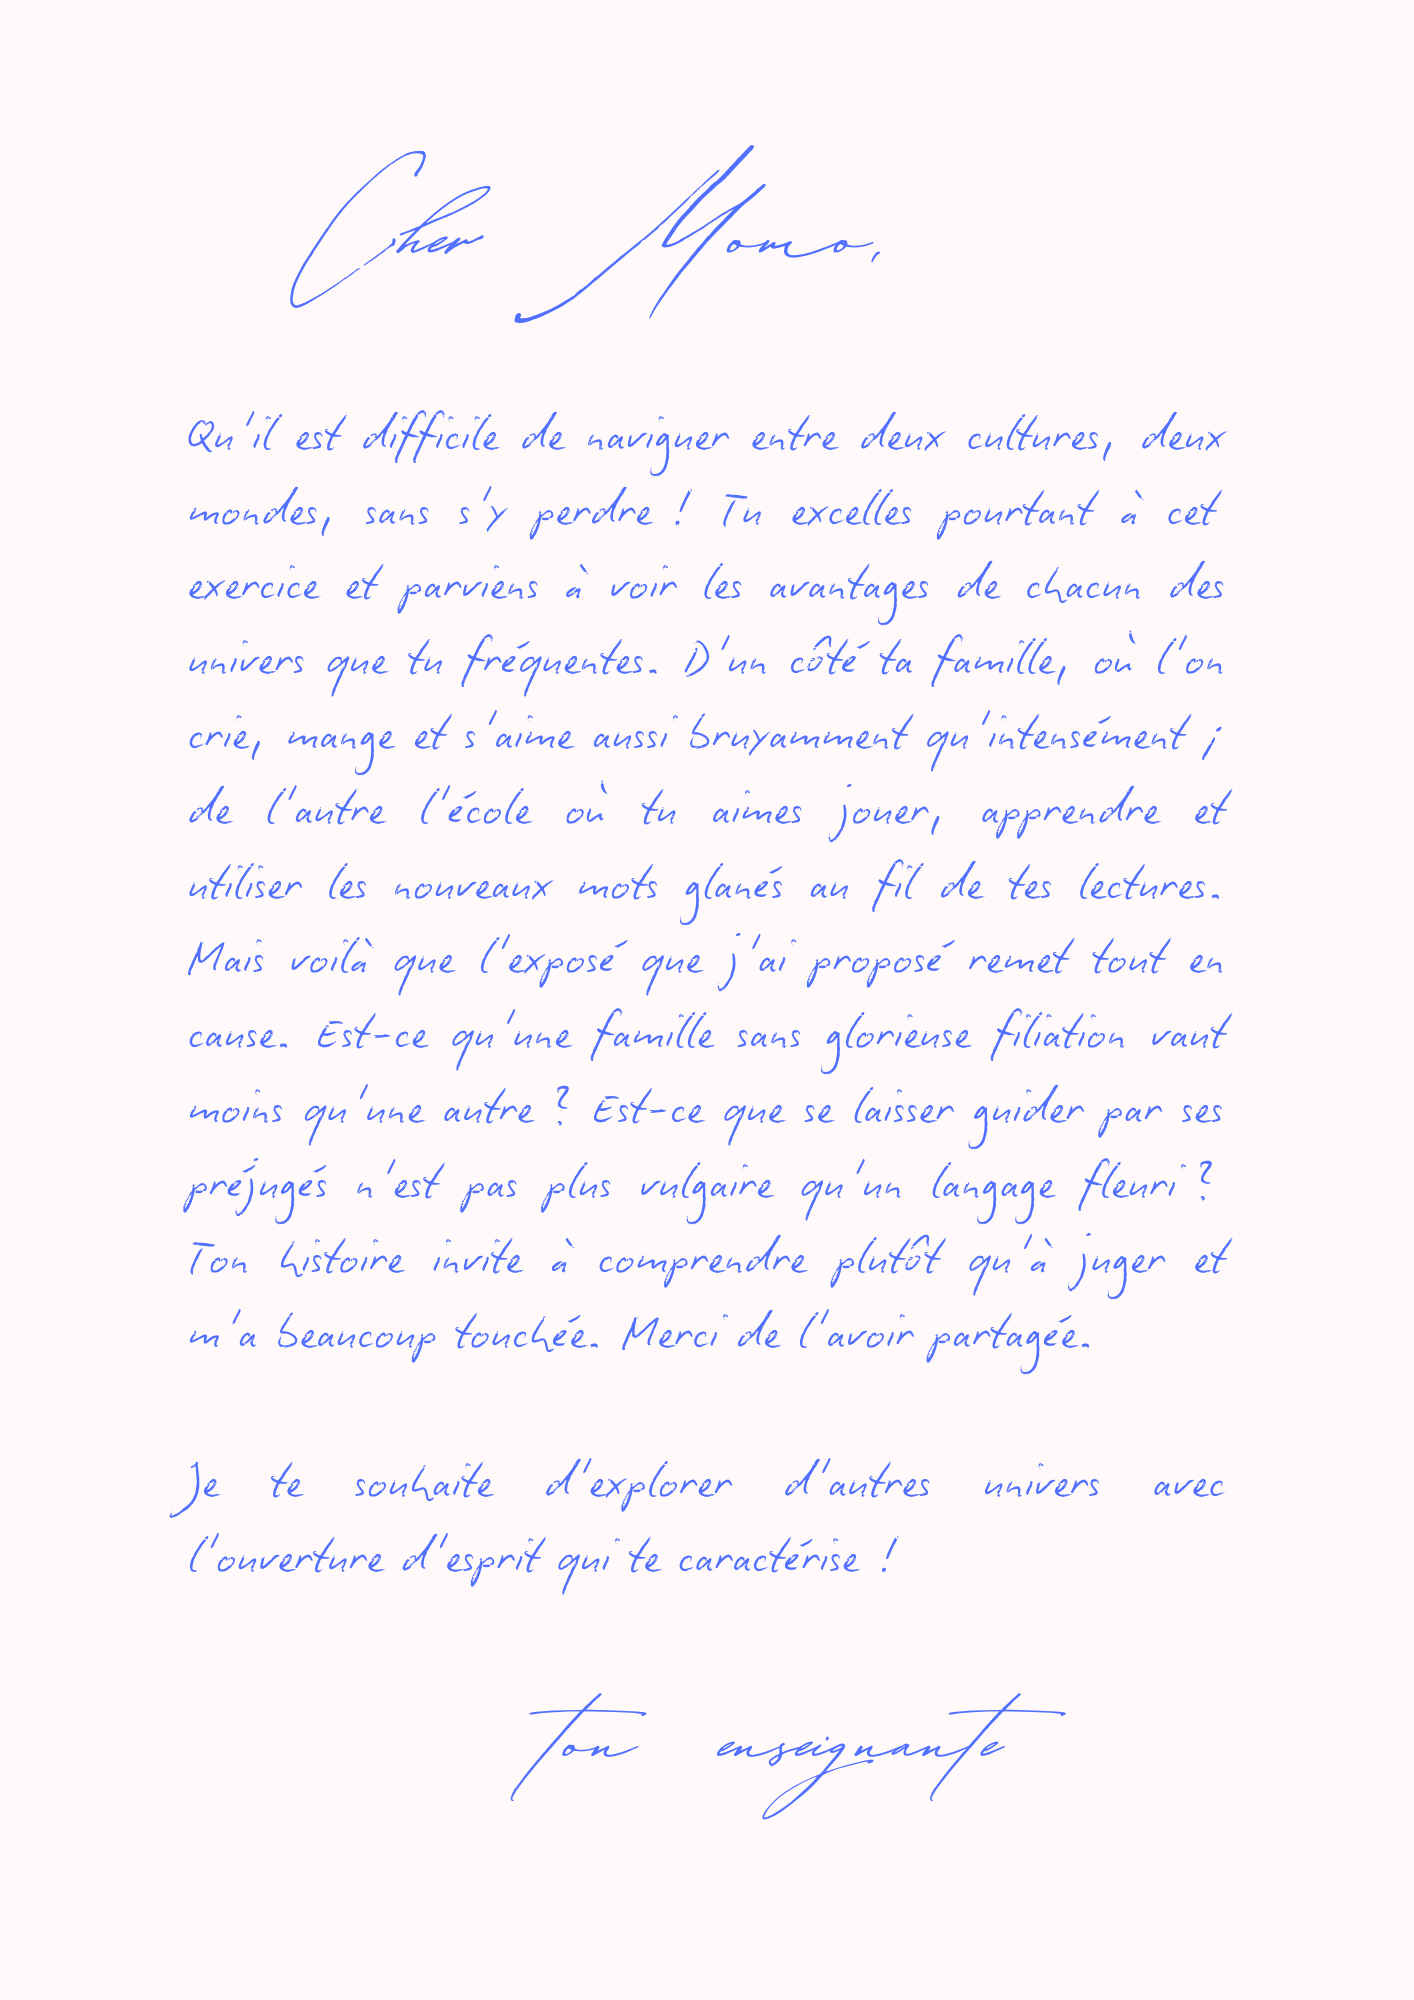 Cher Momo,
Qu'il est difficile de naviguer entre deux cultures, deux
mondes, sans s'y perdre ! Tu excelles pourtant à cet
exercice et parviens à voir les avantages de chacun des
univers que tu fréquentes. D'un côté ta famille, où l'on
crie, mange et s'aime aussi bruyamment qu'intensément ;
de l'autre l'école où tu aimes jouer, apprendre et
utiliser les nouveaux mots glanés au fil de tes lectures.
Mais voilà que l'exposé que j'ai proposé remet tout en
cause. Est-ce qu'une famille sans glorieuse filiation vaut
moins qu'une autre ? Est-ce que se laisser guider par ses
préjugés n'est pas plus vulgaire qu'un langage fleuri ?
Ton histoire invite à comprendre plutôt qu'à juger et
m'a beaucoup touchée. Merci de l'avoir partagée.
Je te souhaite d'explorer d'autres univers avec
l'ouverture d'esprit qui te caractérise !
ton enseignante